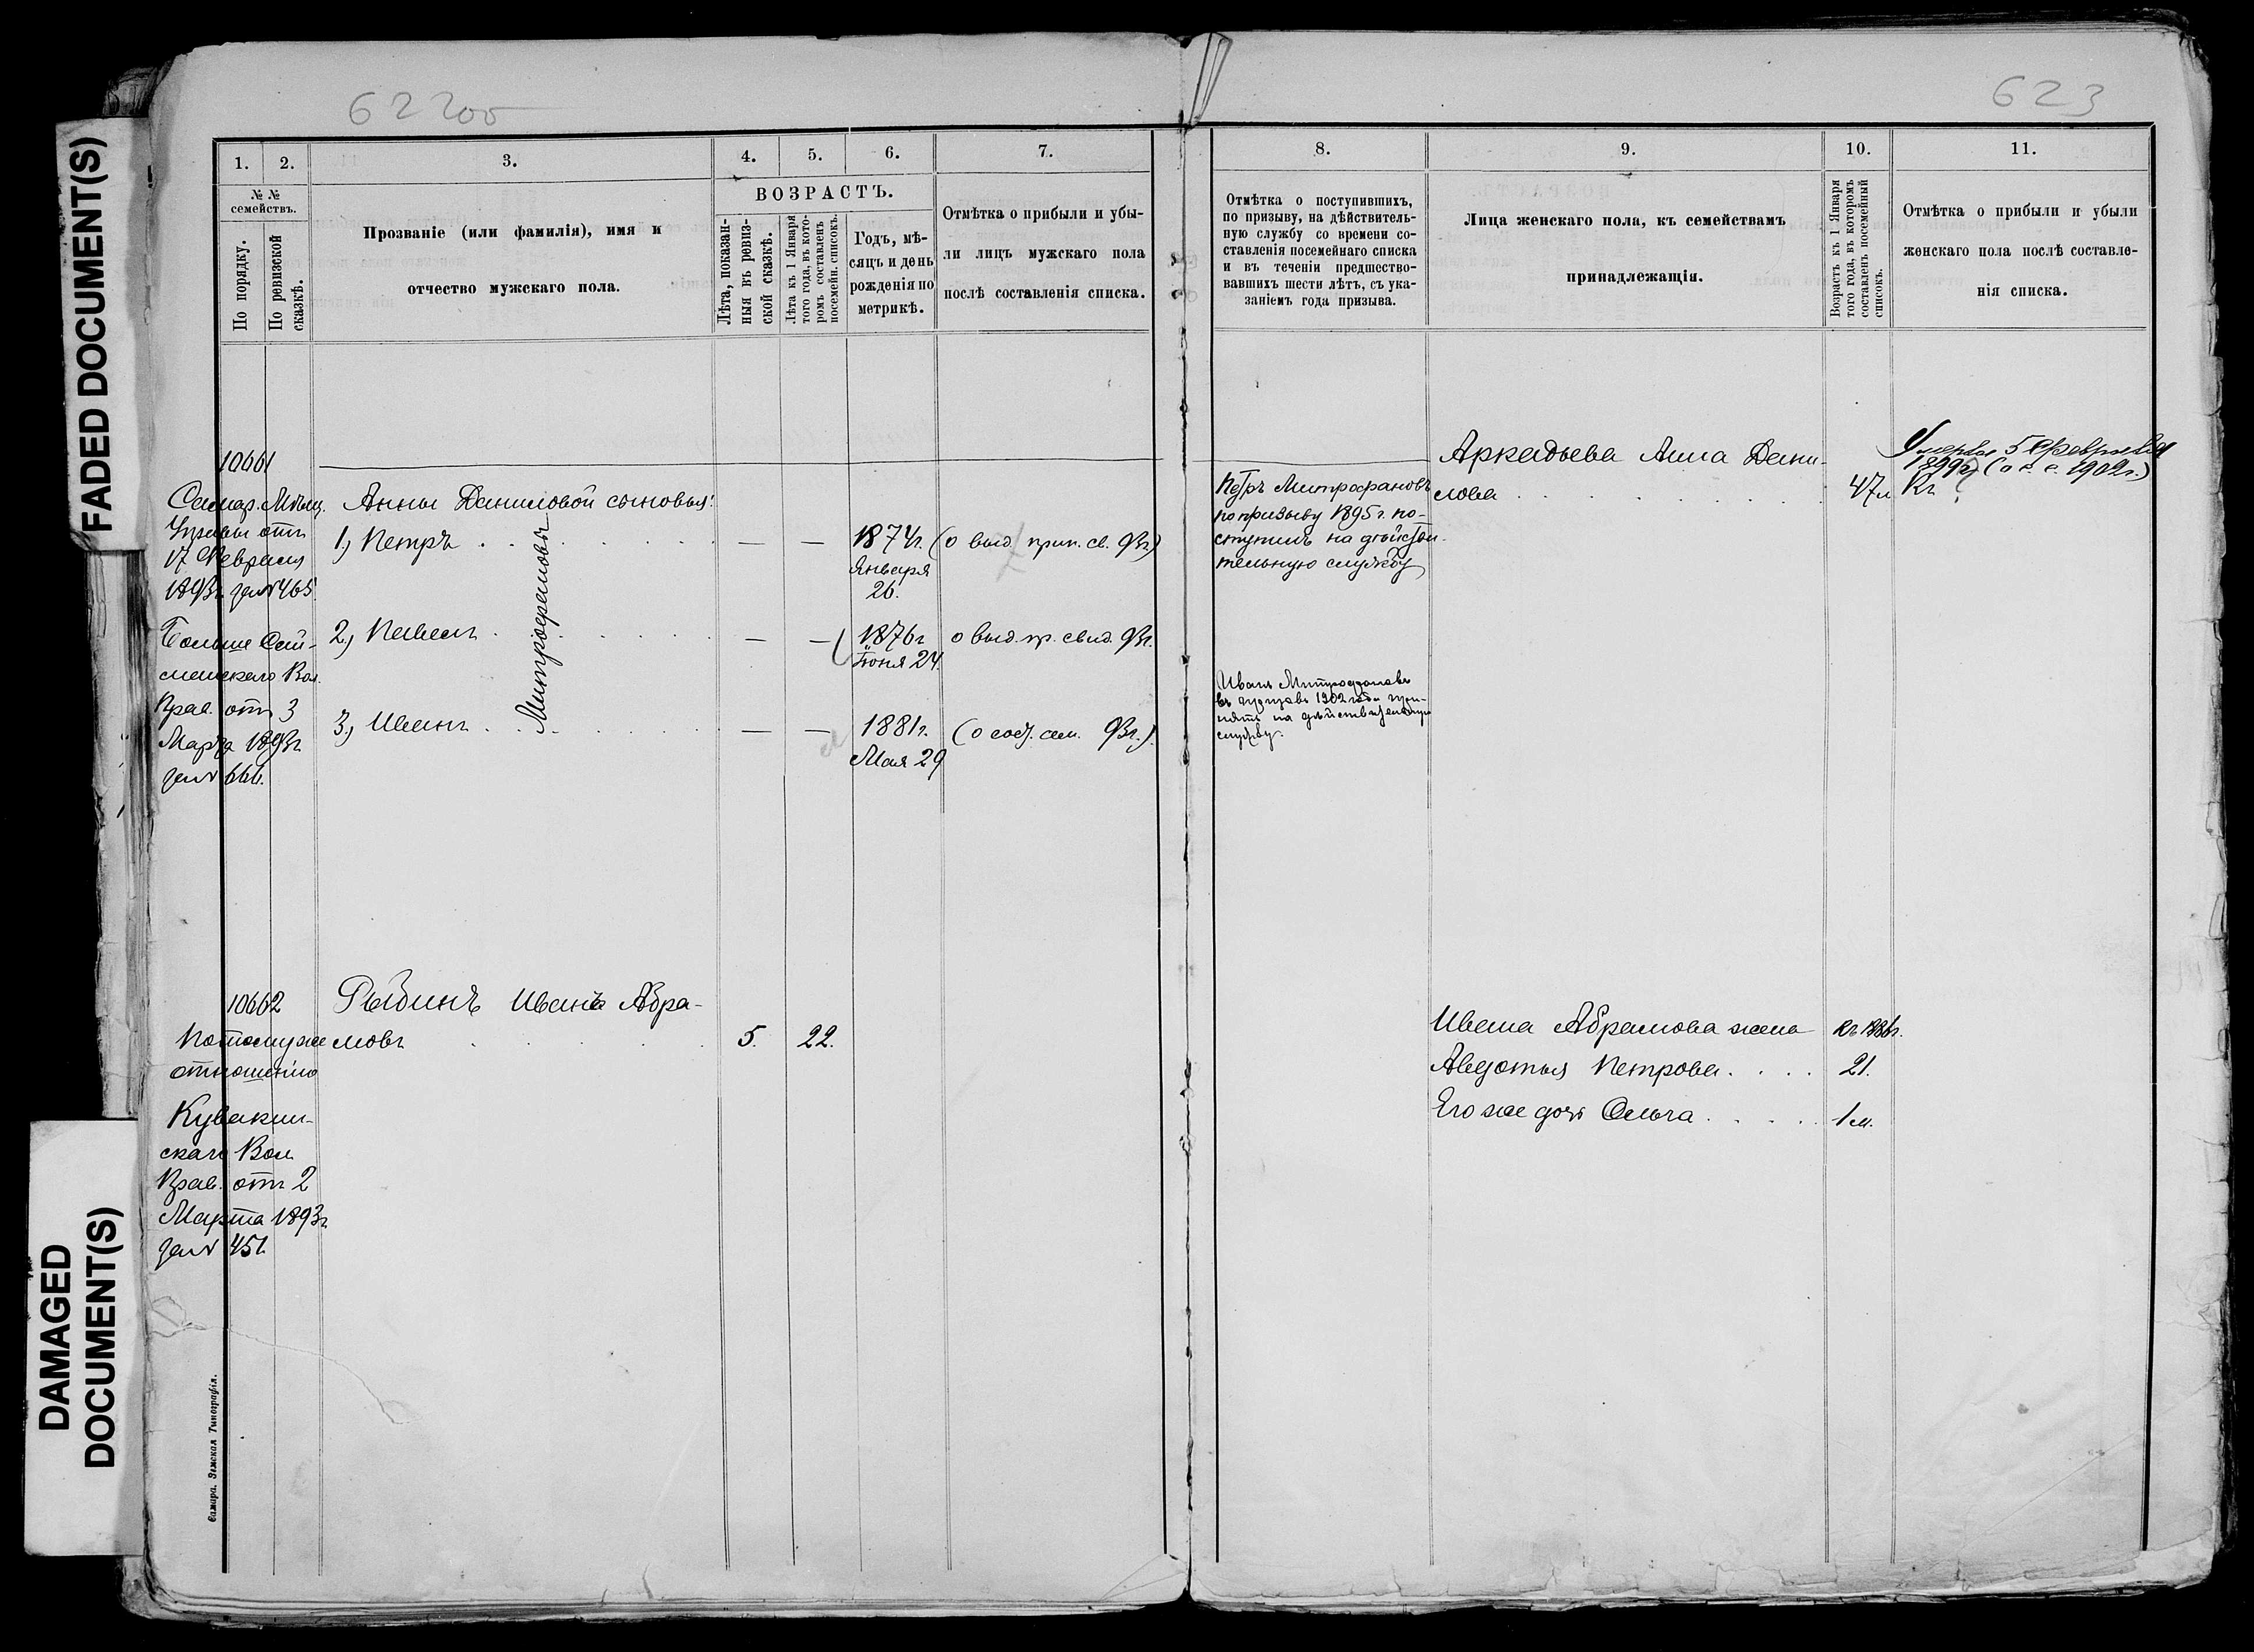 FADED DOCUMENT(S)
DAMAGED
DOCUMENT(S)
622об
1.
2.
3.
4.
5.
6.
7.
№ №
семействъ.
По порядку.
По ревизской
сказкѣ.
Прозваніе (или фамилія), имя и
отчество мужскаго пола.
ВОЗРАСТЪ.
Лѣта, показан-
ныя въ ревиз-
ской сказкѣ.
Лѣта къ 1 Января
того года, въ кото-
ромъ составленъ
посемейн. списокъ.
Годъ, мѣ-
сяцъ и день
рожденія по
метрикѣ.
Отмѣтка о прибыли и убы-
ли лицъ мужскаго пола
послѣ составленія списка.
10661
Самар. Мѣщ.
Управы отъ
17 Февраля
1893г. за № 465.
Больше Сай-
манскаго Вол.
Прав. отъ 3
Марта 1893г.
за № 666.
Анны Даниловой сыновья:
1, Петръ
Митрофановы
— — 1874г. (о выд. прип. св. 93г)
Января
26.
2, Павелъ
— — 1876г. о выд. пр. свид. 93г.
Іюня 24.
3, Иванъ
— — 1881г. (о сост. сем. 93г.)
Мая 29
10662
Рыбинъ Иванъ Абра-
мовъ 5. 22.
По таковому же
отношенію
Кувакин-
скаго Вол.
Прав. отъ 2
Марта 1893г.
за № 451.
Самара. Земская Типографія.
623
8.
9.
10.
11.
Отмѣтка о поступившихъ,
по призыву, на дѣйствитель-
ную службу со времени со-
ставленія посемейнаго списка
и въ теченіи предшество-
вавшихъ шести лѣтъ, съ ука-
заніемъ года призыва.
Лица женскаго пола, къ семействамъ
принадлежащія.
Возрастъ къ 1 Января
того года, въ которомъ
составленъ посемейный
списокъ.
Отмѣтка о прибыли и убыли
женскаго пола послѣ составле-
нія списка.
Аркадьева Анна Дани-
лова 47л
Умерла 5 Февраля
1899г. (о с. с. 1902г.)
Петръ Митрофановъ
по призыву 1895г. по-
ступилъ на дѣйстви-
тельную службу
Иванъ Митрофановъ
въ призывъ 1902 года при-
нятъ на дѣйствительную
службу.
Ивана Абрамова жена къ 1886г.
Авдотья Петрова 21.
Его же дочь Ольга 1м.